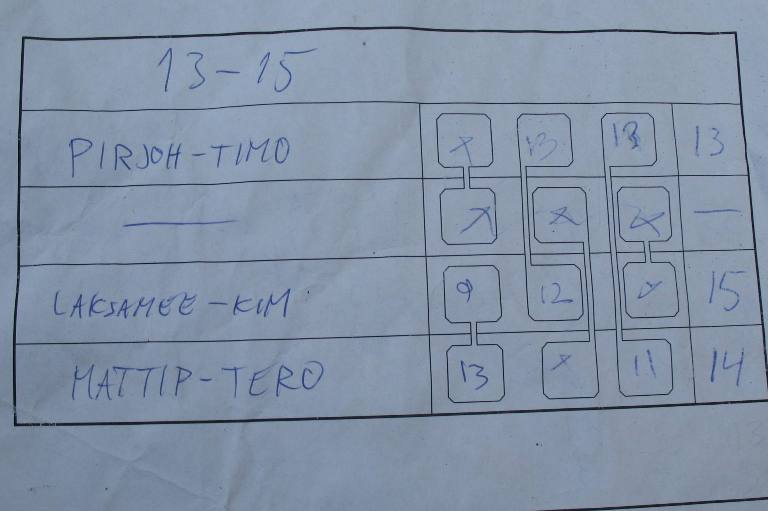 13-15
PIRJOH-TIMO X 13 13 13
— X X X —
LAKSAMEE-KIM 9 12 X 15
MATTIP-TERO 13 X 11 14